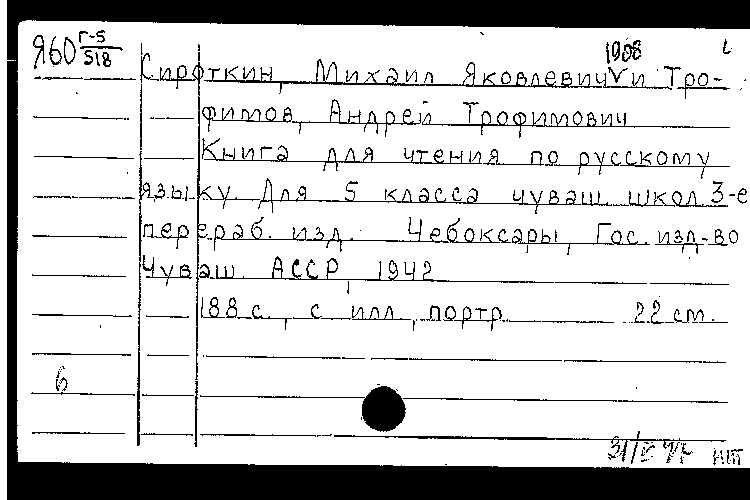 Я60 Г-5/518
1908
Сироткин, Михаил Яковлевич и Тро-
фимов, Андрей Трофимович
Книга для чтения по русскому
языку. Для 5 класса чуваш. школ 3-е
перераб. изд. Чебоксары, Гос. изд-во
Чуваш. АССР, 1942
188 с., с илл., портр. 22 см.
6
нт